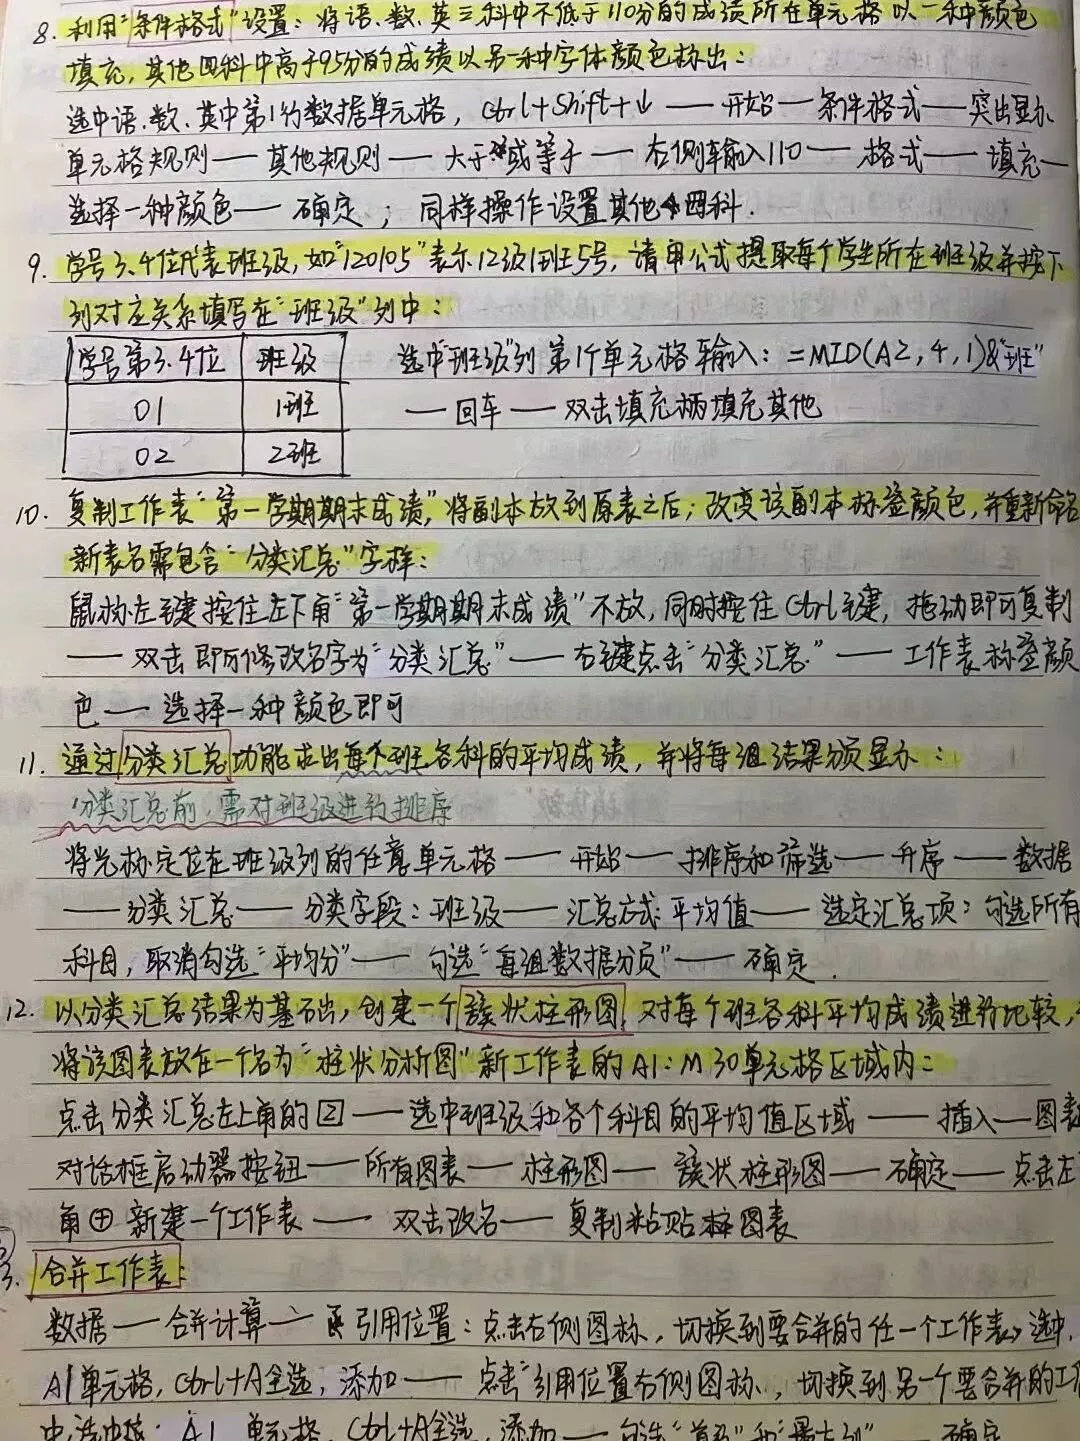 8. 利用"条件格式"设置：将语、数、英三科中不低于110分的成绩所在单元格以一种颜色
填充，其他四科中高于95分的成绩以另一种字体颜色标出：
选中语、数、英中第1行数据单元格，Ctrl+Shift+↓ —— 开始 — 条件格式 —— 突出显示
单元格规则 —— 其他规则 —— 大于或等于 —— 右侧输入110 —— 格式 —— 填充 —
选择一种颜色 —— 确定；同样操作设置其他四科.
9. 学号3、4位代表班级，如"120105"表示12级1班5号，请用公式提取每个学生所在班级并按下
列对应关系填写在"班级"列中：
学号第3.4位 班级
01 1班
02 2班
选中"班级"列第1个单元格输入：=MID(A2,4,1)&"班"
—— 回车 —— 双击填充柄填充其他
10. 复制工作表"第一学期期末成绩"，将副本放到原表之后；改变该副本标签颜色，并重新命名
新表名需包含"分类汇总"字样：
鼠标左键按住左下角"第一学期期末成绩"不放，同时按住Ctrl键，拖动即可复制
—— 双击即可修改名字为"分类汇总" —— 右键点击"分类汇总" —— 工作表标签颜
色 —— 选择一种颜色即可
11. 通过分类汇总功能求出每个班各科的平均成绩，并将每组结果分页显示：
分类汇总前，需对班级进行排序
将光标定位在班级列的任意单元格 —— 开始 —— 排序和筛选 —— 升序 —— 数据
—— 分类汇总 —— 分类字段：班级 —— 汇总方式：平均值 —— 选定汇总项：勾选所有
科目，取消勾选"平均分" —— 勾选"每组数据分页" —— 确定.
12. 以分类汇总结果为基础，创建一个簇状柱形图，对每个班各科平均成绩进行比较，
将该图表放在一个名为"柱状分析图"新工作表的A1：M30单元格区域内：
点击分类汇总左上角的2 —— 选中班级和各个科目的平均值区域 —— 插入 — 图表
对话框启动器按钮 —— 所有图表 — 柱形图 — 簇状柱形图 —— 确定 —— 点击左
角⊕新建一个工作表 —— 双击改名 —— 复制粘贴图表
3. 合并工作表：
数据 —— 合并计算 —— 引用位置：点击右侧图标，切换到要合并的任一个工作表，选中
A1单元格，Ctrl+A全选，添加 —— 点击"引用位置右侧图标，切换到另一个要合并的工
中，选中 A1单元格，Ctrl+A全选，添加 —— 勾选"首行"和"最左列" —— 确定